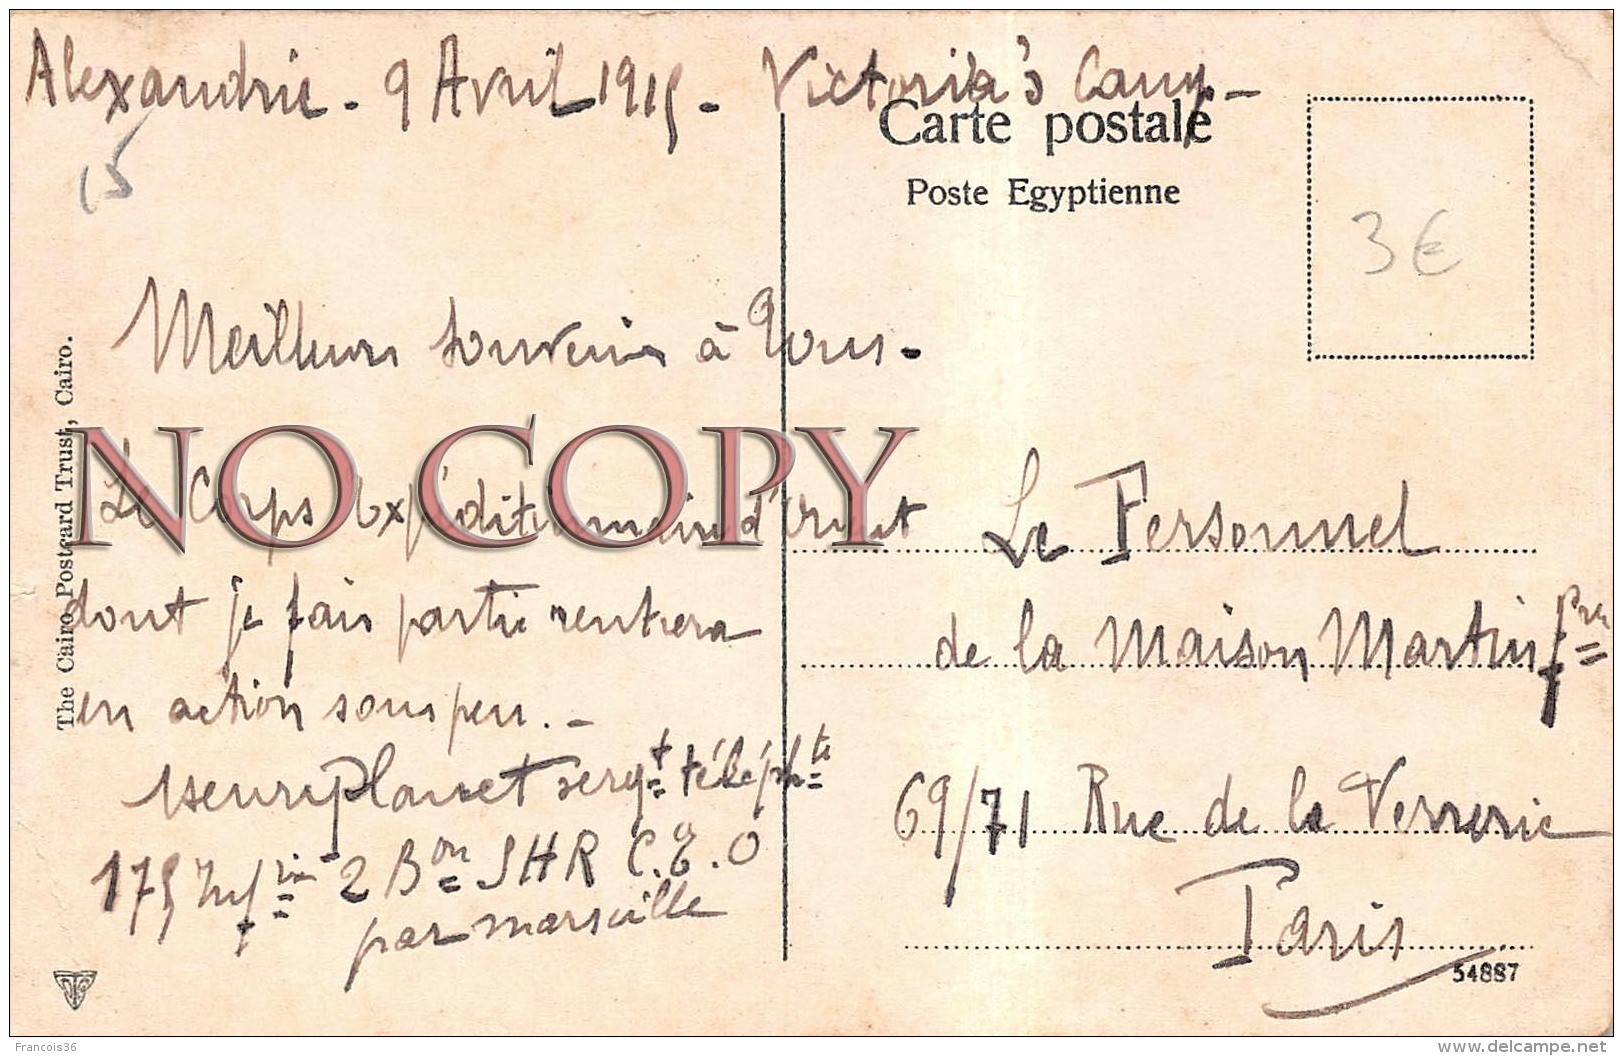 Alexandrie - 9 Avril 1915 - Victoria's Camp -
15
Carte postale
Poste Egyptienne
3 €
Meilleurs souvenirs à Vous -
NO COPY
Le Corps Expéditionnaire d'Orient
dont je fais partie rentrera
en action sous peu. -
sergt téléphte
175 Infrie 2 Bon SHR C.E.O
par marseille
Le Personnel
de la Maison Martin frères
69/71 Rue de la Verrerie
Paris
The Cairo Postcard Trust, Cairo.
54887
Francois36
www.delcampe.net